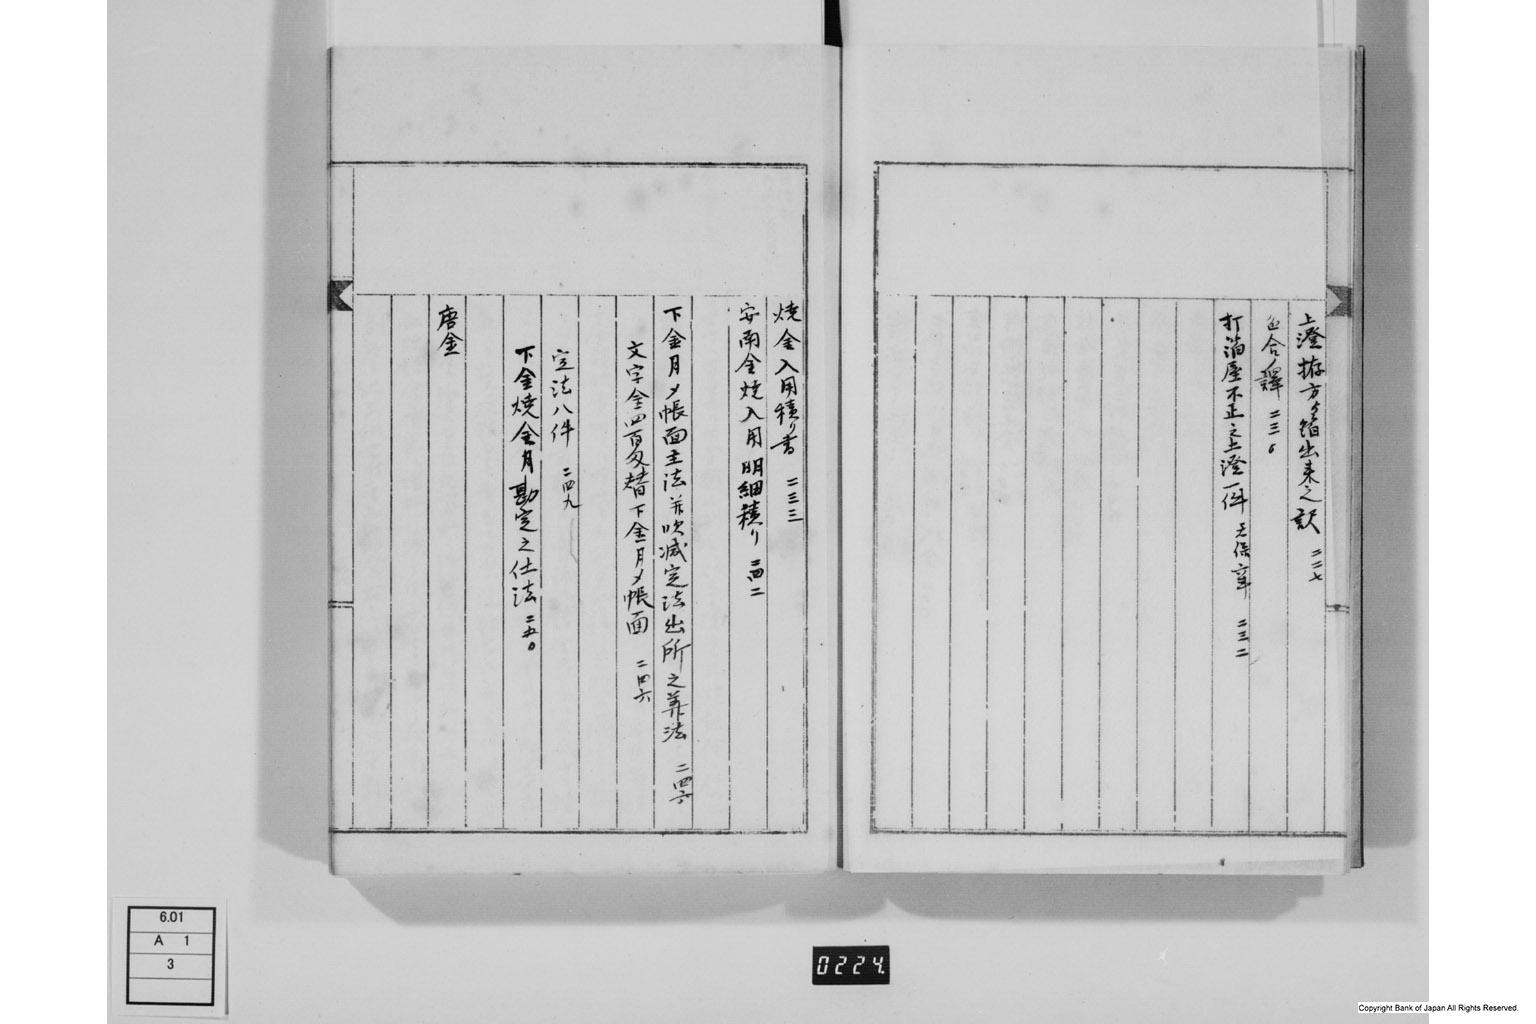 上澄拵方ゟ箔出来之訳 二二七
色合譯 二三〇
打箔屋不正之上澄一件 天保 二三二
焼金入用積り書 二三三
安南金焼入用明細積り 二四二
下金月〆帳面主法并吹減定法出所之算法 二四六
文字金四百匁替下金月〆帳面 二四六
定法八件 二四九
下金焼金月勘定之仕法 二五〇
唐金
6.01
A 1
3
0224.
Copyright Bank of Japan All Rights Reserved.